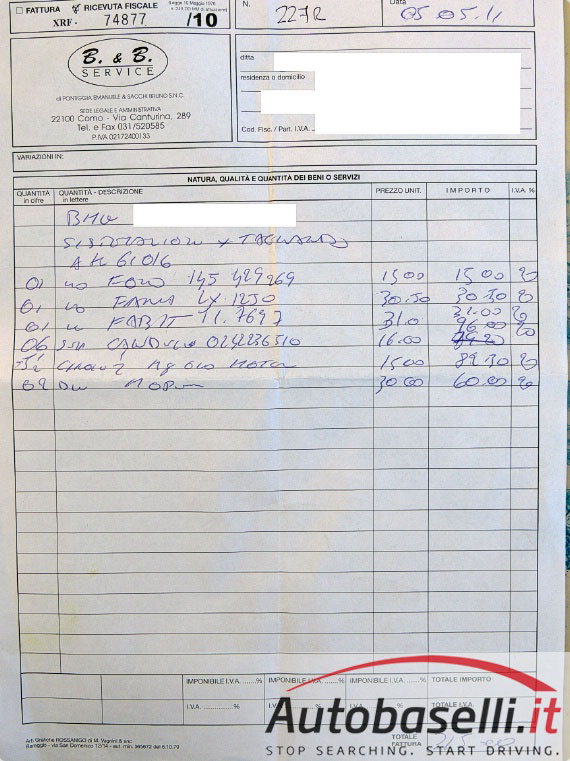 FATTURA RICEVUTA FISCALE
XRF. 74877 /10
N. 227R
Data 05.05.11
B. & B.
SERVICE
di PONTIGGIA EMANUELE & SACCHI BRUNO S.N.C.
SEDE LEGALE E AMMINISTRATIVA
22100 Como - Via Canturina, 289
Tel. e Fax 031/520585
P.IVA 02172400133
ditta
residenza o domicilio
Cod. Fisc. / Part. I.V.A.
VARIAZIONI IN:
NATURA, QUALITÀ E QUANTITÀ DEI BENI O SERVIZI
QUANTITÀ in cifre QUANTITÀ - DESCRIZIONE in lettere PREZZO UNIT. IMPORTO I.V.A. %
BMW
AK 61016
01 145 429269 15.00 15.00 20
01 LX 1250 30.50 30.50 20
01 11.7697 31.0 31.00 20
06 0242236510 16.00 96.00 20
15.00 89.30 20
02 30.00 60.00 20
IMPONIBILE I.V.A. .......% IMPONIBILE I.V.A. .......% IMPONIBILE I.V.A. .......% TOTALE IMPORTO
I.V.A. .......% I.V.A. .......% I.V.A. .......% TOTALE I.V.A.
TOTALE FATTURA
Arti Grafiche ROSSANGO di M. Vagnini & sas:
Bareggio - via San Domenico 12/14 - aut. min. 365672 del 6.10.79
Autobaselli.it
STOP SEARCHING. START DRIVING.